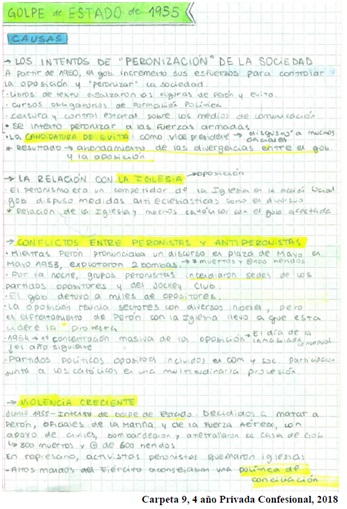 GOLPE de ESTADO de 1955
CAUSAS
→ LOS INTENTOS DE "PERONIZACIÓN" DE LA SOCIEDAD
A partir de 1950, el gob. incrementó sus esfuerzos para controlar
la oposición y "peronizar" la sociedad.
· Libros de texto exaltaron las figuras de Perón y Evita.
· Cursos obligatorios de formación Política
· Censura y control estatal sobre los medios de comunicación
* Se intentó peronizar a las fuerzas armadas
* La CANDIDATURA DE EVITA como vice presidente → disgustó a muchos oficiales
* RESULTADO → ahondamiento de las divergencias entre el gob.
y la oposición
→ LA RELACIÓN CON LA IGLESIA → oposición
El peronismo era un competidor de la Iglesia en la acción social
gob dispuso medidas anti eclesiásticas como el divorcio
* Relación de la Iglesia y muchos católicos con el gob afectada
→ CONFLICTOS ENTRE PERONISTAS Y ANTIPERONISTAS
· Mientras Perón pronunciaba un discurso en plaza de Mayo en
Mayo 1953, explotaron 2 bombas. → muertos y heridos
· Por la noche, grupos peronistas incendiaron sedes de los
partidos opositores y del Jockey Club.
· El gob detuvo a miles de opositores.
· La oposición reunía sectores con diversos, pero
el enfrentamiento de Perón con la Iglesia llevó a que esta
lidere la protesta
1954 → concentración masiva de la oposición → El día de la
el año siguiente
· Partidos Políticos opositores incluidos el com y soc. participaron
junto a los católicos en una multitudinaria procesión.
→ VIOLENCIA CRECIENTE
Junio 1955 - Intento de Golpe de Estado. Decididos a matar a
Perón, oficiales de la Marina y de la Fuerza Aérea, con
apoyo de civiles, bombardearon y ametrallaron la Casa de Gob.
↳ 300 muertos y de 600 heridos
En represalia, activistas peronistas quemaron iglesias
· Altos mandos del Ejército aconsejaban una política de
conciliación
Carpeta 9, 4 año Privada Confesional, 2018